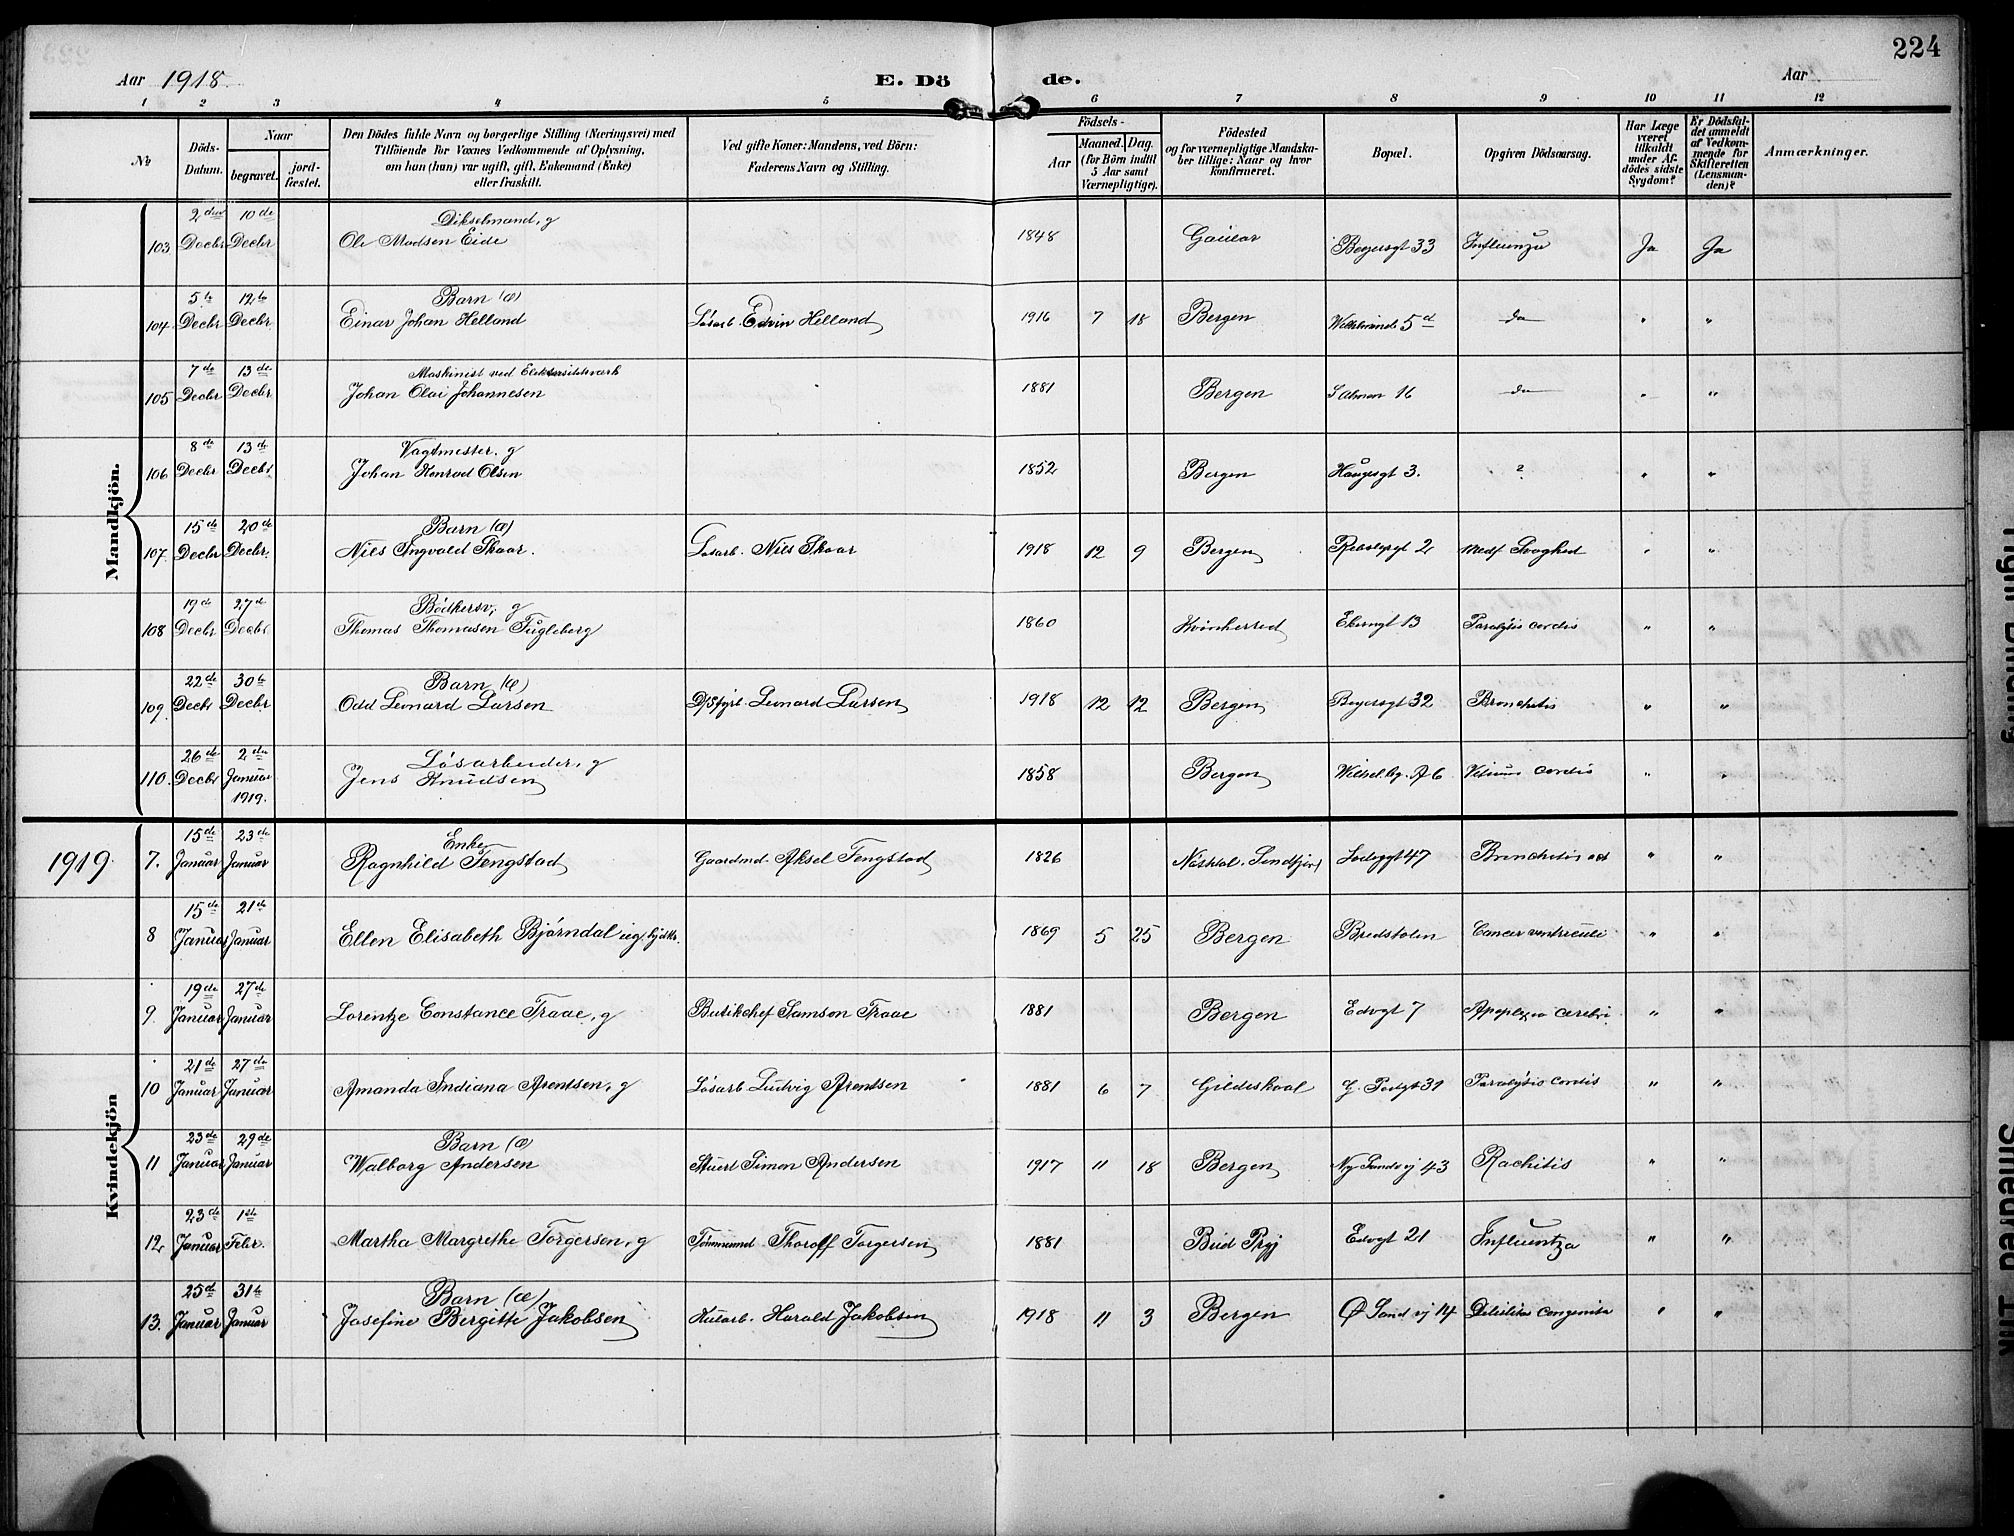 224
Aar 1918. E. Dö de. Aar
1 2 3 4 5 6 7 8 9 10 11 12
No
Döds-Datum.
Naar
begravet. jord-fæstet.
Den Dödes fulde Navn og borgerlige Stilling (Næringsvei) med
Tilföiende for Voxnes Vedkommende af Oplysning,
om han (hun) var ugift, gift, Enkemand (Enke)
eller fraskilt.
Ved gifte Koner: Mandens, ved Börn:
Faderens Navn og Stilling.
Födsels-
Aar Maaned. Dag.
(for Börn indtil
5 Aar samt
Værnepligtige).
Födested
og for værnepligtige Mandska-
ber tillige: Naar og hvor
konfirmeret.
Bopæl.
Opgiven Dödsaarsag.
Har Læge
været
tilkaldt
under Af-
dödes sidste
Sygdom?
Er Dödsfal-
det anmeldt
af Vedkom-
mende for
Skifteretten
(Lensman-
den)?
Anmærkninger.
Mandkjön.
103 2den Decbr 10de Decbr
Ole Madsen Eide
1848 Gaular Beyersgt 33 Influenza Ja Ja
104 5te Decbr 12te Decbr Barn (æ)
Einar Johan Helland Løsarb. Edvin Helland 1916 7 18 Bergen 5d do " "
105 7de Decbr 13de Decbr Maskinist ved Elektrisitetsværk
Johan Olai Johannesen 1881 Bergen 16 do " "
106 8de Decbr 13de Decbr Vagtmester, g
Johan Konrad Olsen 1852 Bergen Haugesgt 3. ? " "
107. 15de Decbr 20de Decbr. Barn (æ)
Nils Ingvald Skaar. Løsarb. Nils Skaar 1918 12 9 Bergen 2 Medf Svaghed " "
108 19de Decbr 27de Decbr. Bödkersv, g
Thomas Thomasen Fugleberg 1860 Kvinherred Ekerngt 13 Paralysis cordis " "
109. 22de Decbr 30te Decbr Barn (æ)
Odd Leonard Larsen D/Sfyrb. Leonard Larsen 1918 12 12 Bergen Beyersgt 32 Bronchitis " "
110. 26de Decbr 2den Januar 1919. Løsarbeider, g
Jens Knudsen 1858 Bergen 6 Vitium cordis " "
Kvindekjön
1919
7. 15de Januar 23de Januar Enke
Ragnhild Tengstad Gaardmd. Aksel Tengstad 1826 47 Bronchitis " "
8 15de Januar 21de Januar
Ellen Elisabeth Bjørndal ug. 1869 5 25 Bergen Bredstolen Cancer ventriculi " "
9. 19de Januar 27de Januar
Lorentze Constance Traae, g Butikchef Samson Traae 1881 Bergen Edvgt 7 Apoplexia cerebri " "
10 21de Januar 27de Januar
Amanda Indiana Arentsen, g Løsarb Ludvig Arentsen 1881 6 7 Gildeskaal 31 Paralysis cordis " "
11 23de Januar 29de Januar Barn (æ)
Walborg Andersen Stuert Simon Andersen 1917 11 18 Bergen Ny Sandvj 43 Rachitis " "
12. 23de Januar 1ste Febr.
Martha Margrethe Torgersen, g Tømmermd Thoroff Torgersen 1881 Bud Pgj Edvgt 21 Influentza " "
13. 25de Januar 31te Januar Barn (æ)
Josefine Bergitte Jakobsen Kularb. Harald Jakobsen 1918 11 3 Bergen Ø Sandvj 14 Debilitas congenita " "